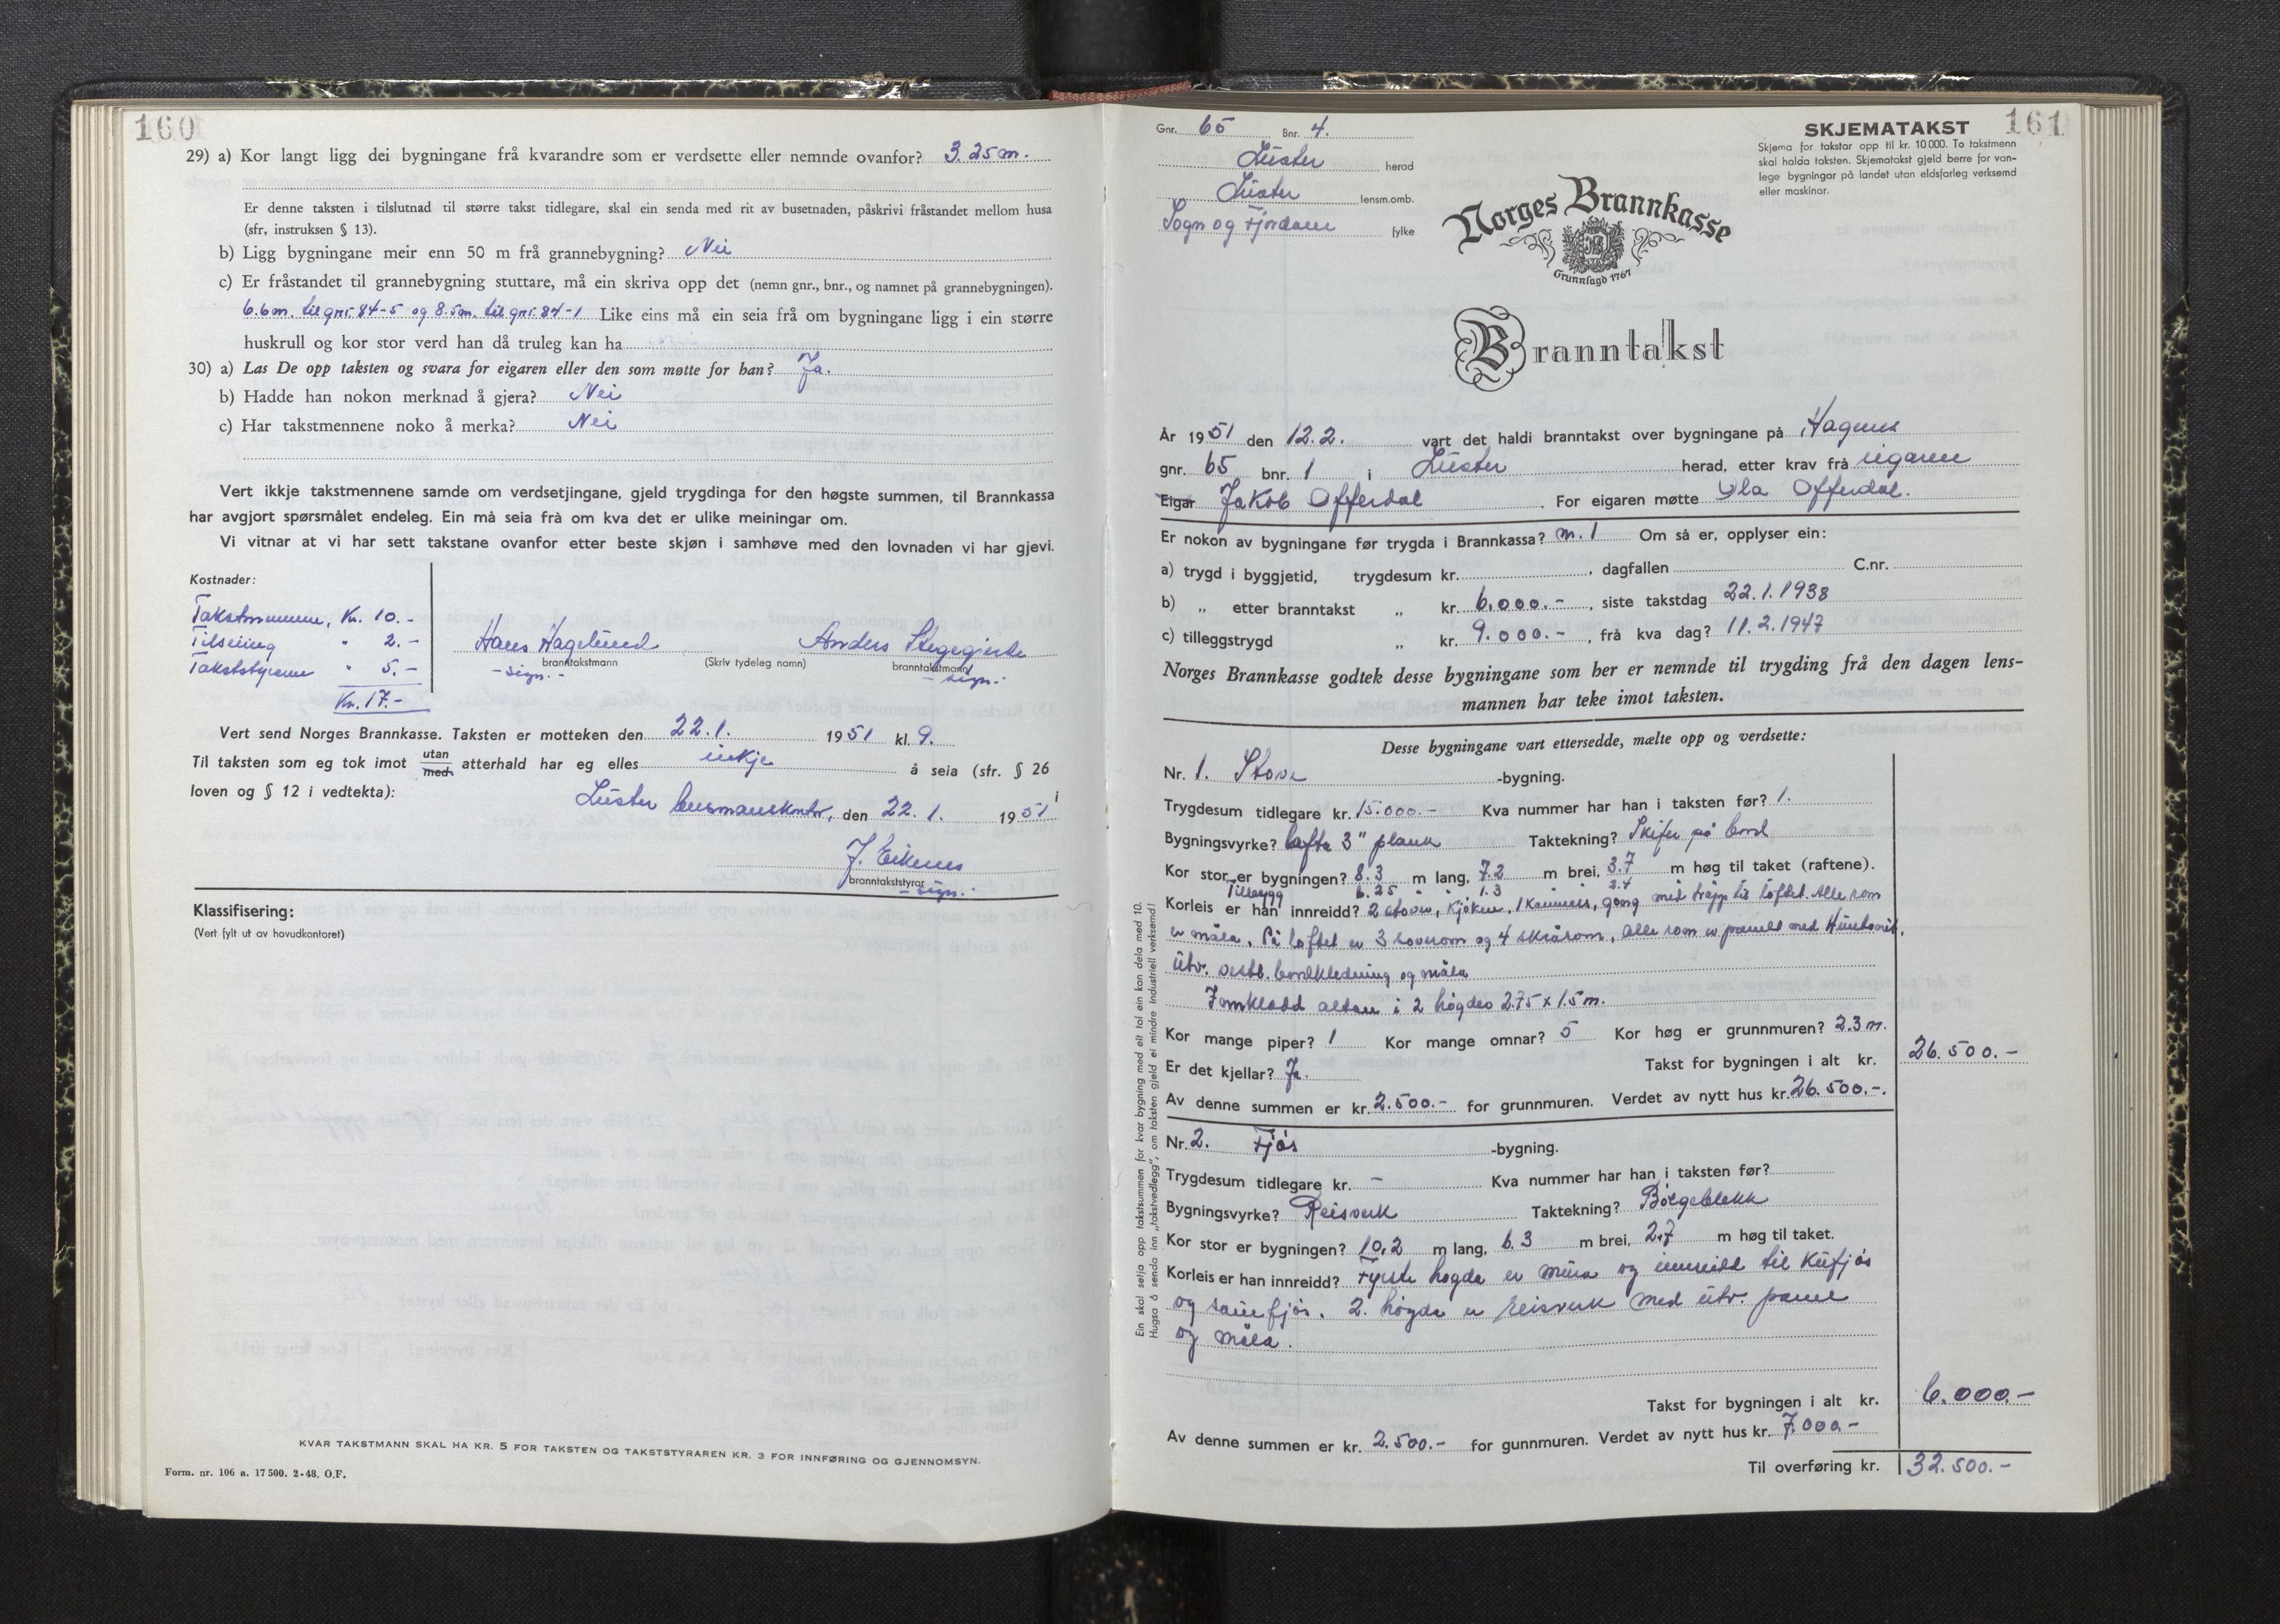 160
29) a) Kor langt ligg dei bygningane frå kvarandre som er verdsette eller nemnde ovanfor? 3.25 m.
Er denne taksten i tilslutnad til større takst tidlegare, skal ein senda med rit av busetnaden, påskrivi fråstandet mellom husa
(sfr, instruksen § 13).
b) Ligg bygningane meir enn 50 m frå grannebygning? Nei
c) Er fråstandet til grannebygning stuttare, må ein skriva opp det (nemn gnr., bnr., og namnet på grannebygningen).
6.6m. til gnr. 84-5 og 8.5m. til gnr. 84-1 Like eins må ein seia frå om bygningane ligg i ein større
huskrull og kor stor verd han då truleg kan ha
30) a) Las De opp taksten og svara for eigaren eller den som møtte for han? Ja.
b) Hadde han nokon merknad å gjera? Nei
c) Har takstmennene noko å merka? Nei
Vert ikkje takstmennene samde om verdsetjingane, gjeld trygdinga for den høgste summen, til Brannkassa
har avgjort spørsmålet endeleg. Ein må seia frå om kva det er ulike meiningar om.
Vi vitnar at vi har sett takstane ovanfor etter beste skjøn i samhøve med den lovnaden vi har gjevi.
Kostnader:
Takstmennene, Kr. 10.-
Tilseiing " 2.-
Takststyraren " 5.-
Kr. 17.-
Hans Hagelund Anders
brannta­kstmann (Skriv tydeleg namn) branntakstmann
- sign. - - sign. -
Vert send Norges Brannkasse. Taksten er motteken den 22.1. 1951 kl. 9.
Til taksten som eg tok imot utan/med atterhald har eg elles inkje å seia (sfr. § 26 i
loven og § 12 i vedtekta):
Luster lensmannskontor, den 22.1. 1951
J. Eikenes
branntakststyrar
- sign. -
Klassifisering:
(Vert fylt ut av hovudkontoret)
KVAR TAKSTMANN SKAL HA KR. 5 FOR TAKSTEN OG TAKSTSTYRAREN KR. 3 FOR INNFØRING OG GJENNOMSYN.
Form. nr. 106 a. 17 500. 2-48. O.F.
161
Gnr. 65 Bnr. 4.
Luster herad
Luster lensm.omb.
Sogn og Fjordane fylke
SKJEMATAKST
Skjema for takstar opp til kr. 10 000. To takstmenn
skal halda taksten. Skjematakst gjeld berre for van-
lege bygningar på landet utan eldsfarleg verksemd
eller maskinar.
Norges Brannkasse
Grunnlagd 1767
Branntakst
År 1951 den 12.2. vart det haldi branntakst over bygningane på Hagenes
gnr. 65 bnr. 1 i Luster herad, etter krav frå eigaren
Eigar Jakob Offerdal. For eigaren møtte Ola Offerdal.
Er nokon av bygningane før trygda i Brannkassa? nr. 1 Om så er, opplyser ein:
a) trygd i byggjetid, trygdesum kr. , dagfallen C.nr.
b) „ etter branntakst „ kr. 6.000.- , siste takstdag 22.1.1938
c) tilleggstrygd „ kr. 9.000.- , frå kva dag? 11.2.1947
Norges Brannkasse godtek desse bygningane som her er nemnde til trygding frå den dagen lens-
mannen har teke imot taksten.
Desse bygningane vart ettersedde, mælte opp og verdsette:
Nr. 1. Stove -bygning.
Trygdesum tidlegare kr. 15.000.- Kva nummer har han i taksten før? 1.
Bygningsvyrke? lafta 3" plank Taktekning? Skifer på bord
Kor stor er bygningen? 8.3 m lang, 7.2 m brei, 3.7 m høg til taket (raftene).
Tilbygg 6.25 " 1.3 " 2.4
Korleis er han innreidd? 2 stover, kjøken, 1 kammers, gang med trapp til loftet. Alle rom
er måla. På loftet er 3 soverom og 4 skrårom, alle rom er panelt med Huntonit,
utv. vestl. bordkledning og måla
Jernkledd altan i 2 høgder 2.75 x 1.5 m.
Kor mange piper? 1 Kor mange omnar? 5 Kor høg er grunnmuren? 2.3 m.
Er det kjellar? Ja. Takst for bygningen i alt kr. 26.500.-
Av denne summen er kr. 2.500.- for grunnmuren. Verdet av nytt hus kr. 26.500.-.
Nr. 2. Fjøs -bygning.
Trygdesum tidlegare kr. - Kva nummer har han i taksten før?
Bygningsvyrke? Reisverk Taktekning? Bølgeblekk
Kor stor er bygningen? 10,2 m lang, 6.3 m brei, 2.7 m høg til taket.
Korleis er han innreidd? Fyrste høgda er mura og innreidd til kufjøs
og sauefjøs. 2. høgda er reisverk med utv. panel
og måla.
Takst for bygningen i alt kr. 6.000.-
Av denne summen er kr. 2.500.- for gunnmuren. Verdet av nytt hus kr. 7.000.-
Til overføring kr. 32.500.-
Ein skal setja opp takstsummen for kvar bygning med eit tal ein kan dela med 10.
Hugsa å senda inn „takstvedlegg", om taksten gjeld ei mindre industriell verksemd!